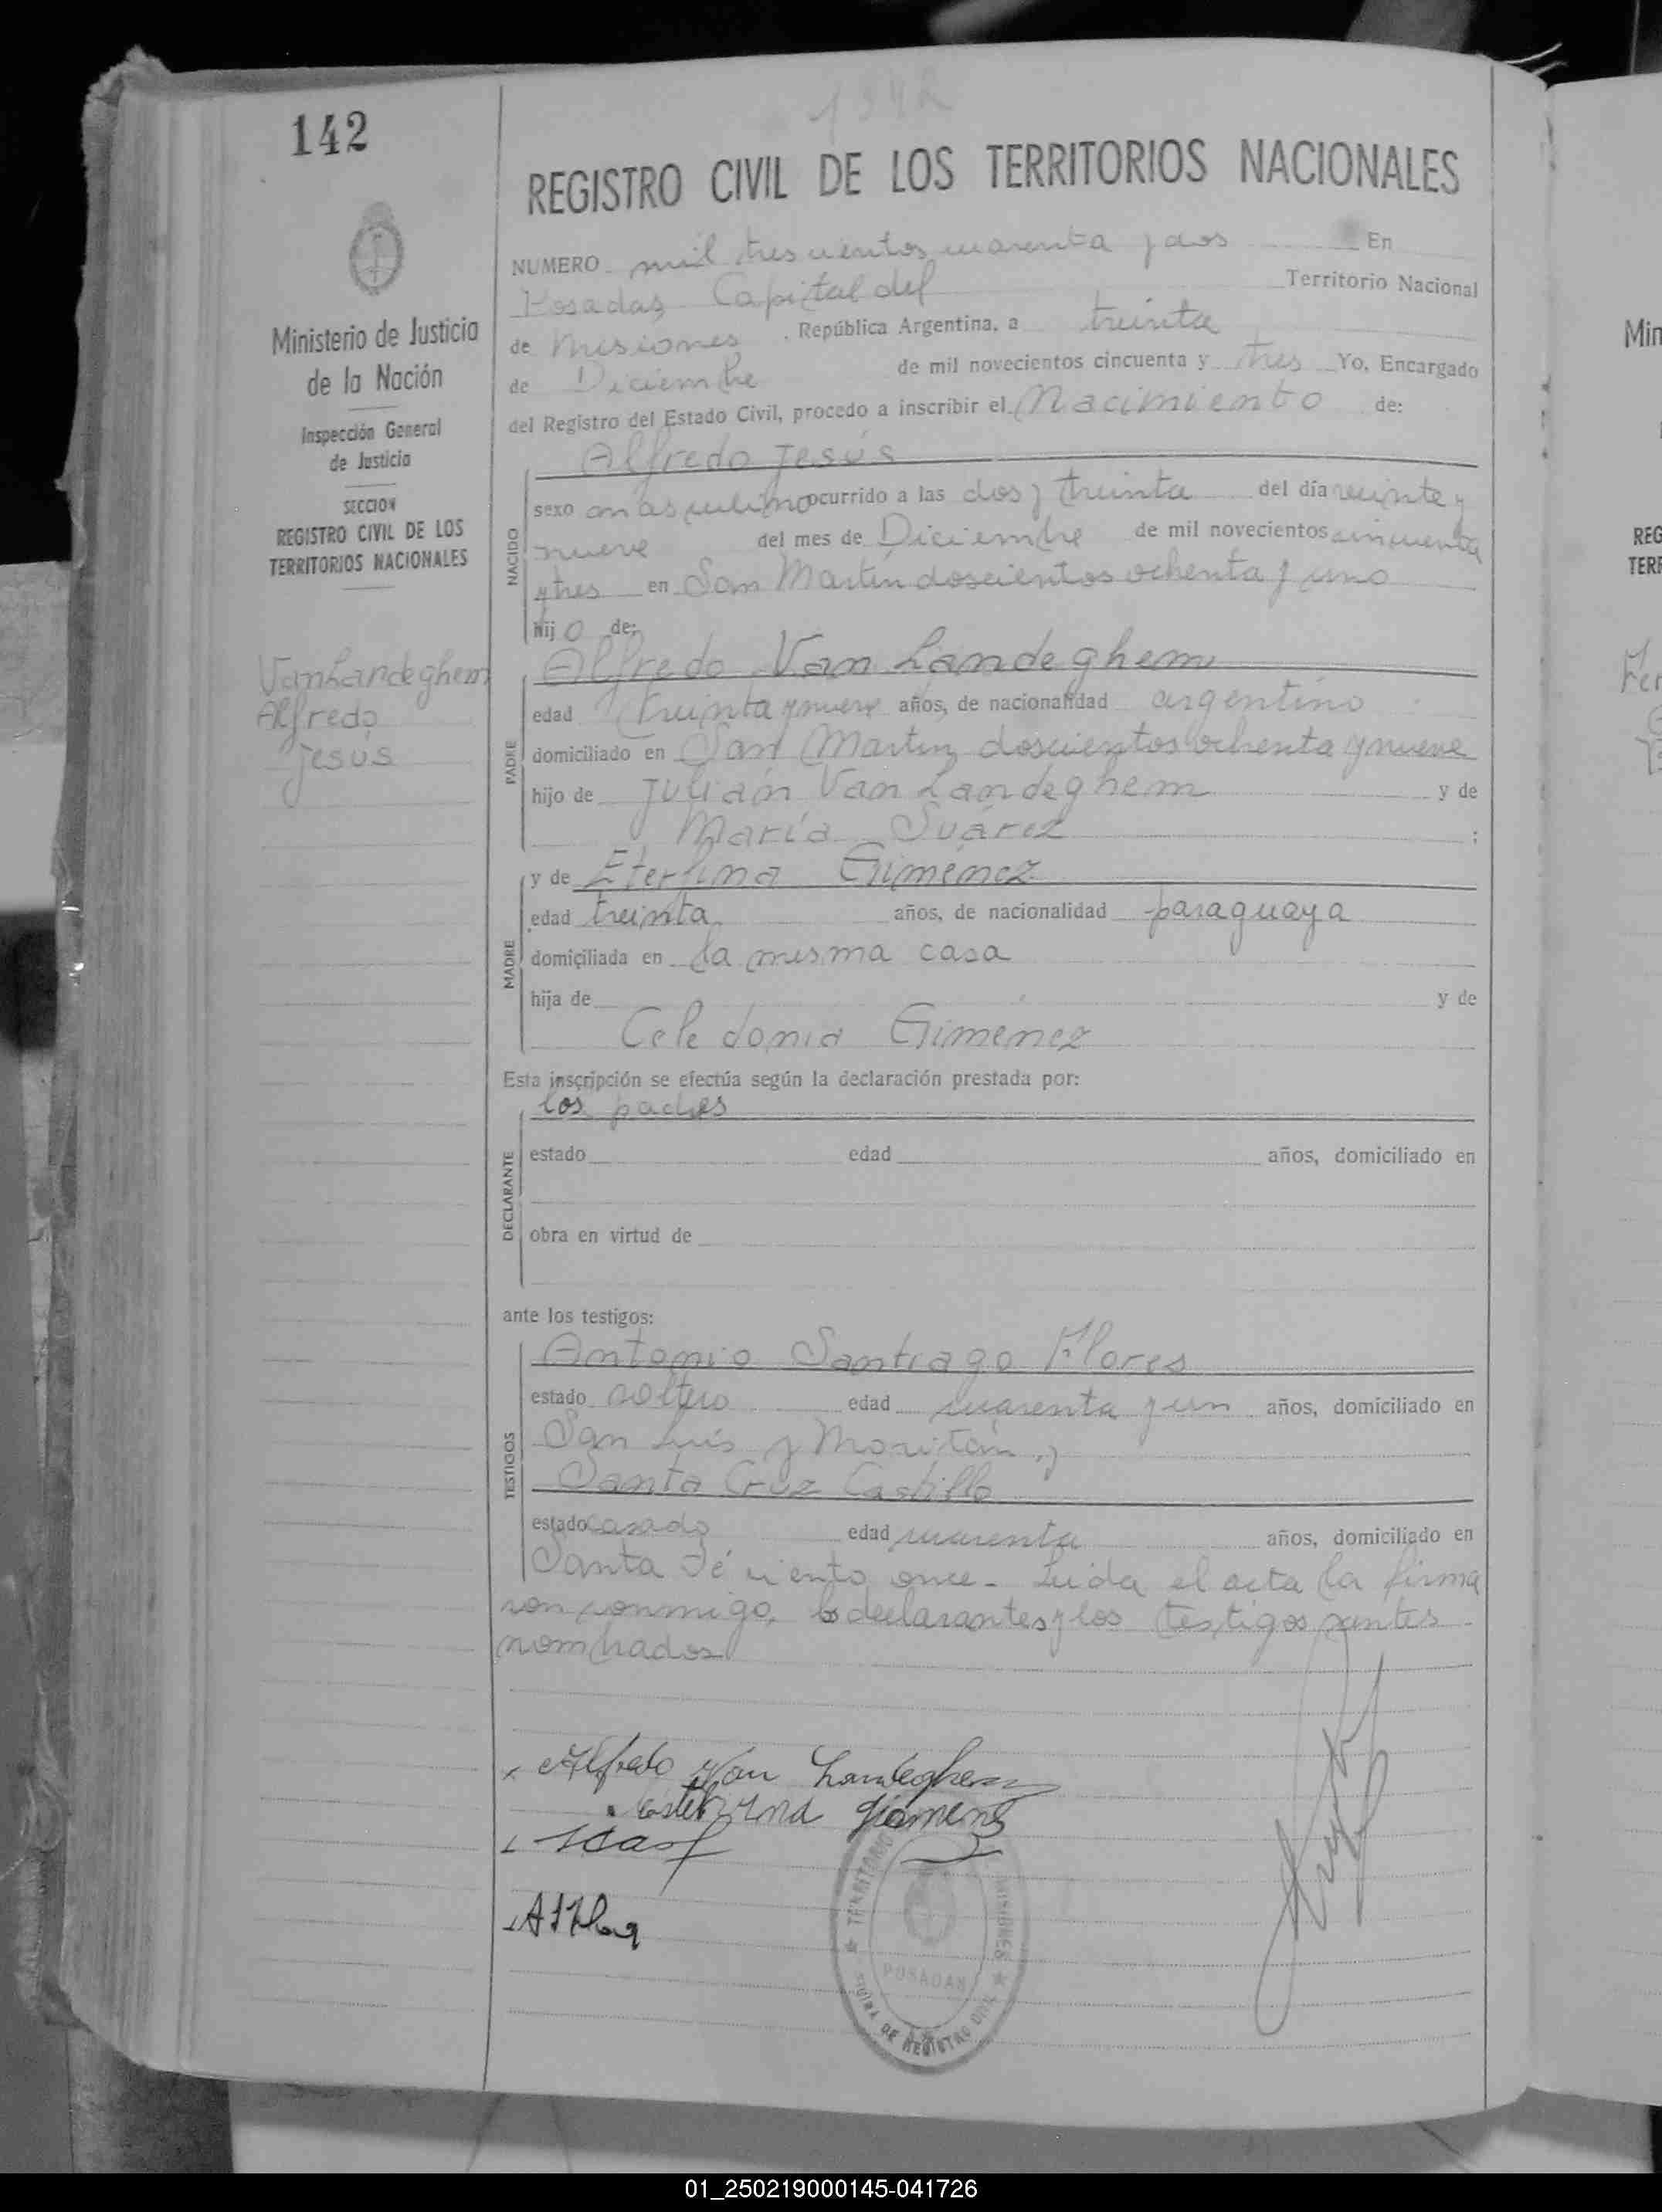 1342
142
REGISTRO CIVIL DE LOS TERRITORIOS NACIONALES
Ministerio de Justicia
de la Nación
Inspección General
de Justicia
SECCION
REGISTRO CIVIL DE LOS
TERRITORIOS NACIONALES
Van Landeghem
Alfredo
Jesús
NUMERO mil trescientos cuarenta y dos En
Posadas Capital del Territorio Nacional
de Misiones . República Argentina, a treinta
de Diciembre de mil novecientos cincuenta y tres Yo, Encargado
del Registro del Estado Civil, procedo a inscribir el Nacimiento de:
Alfredo Jesús
NACIDO
sexo masculino ocurrido a las dos y treinta del día veinte y
nueve del mes de Diciembre de mil novecientos cincuenta
y tres en San Martín doscientos ochenta y uno
hijo de:
Alfredo Van Landeghem
PADRE
edad treinta y nueve años, de nacionalidad argentino
domiciliado en San Martín doscientos ochenta y nueve
hijo de Julián Van Landeghem y de
María Suárez ;
y de Eterlina Giménez
MADRE
edad treinta años, de nacionalidad paraguaya
domiciliada en la misma casa
hija de y de
Celedonia Giménez
Esta inscripción se efectúa según la declaración prestada por:
los padres
DECLARANTE
estado edad años, domiciliado en
obra en virtud de
ante los testigos:
Antonio Santiago Flores
TESTIGOS
estado soltero edad cuarenta y un años, domiciliado en
San Luis y Moritán y
Santa Cruz Castillo
estado casado edad cuarenta años, domiciliado en
Santa Fé ciento once - Leida el acta la firma
ron conmigo, los declarantes y los testigos antes
nombrados
Alfredo Van Landeghem
TERRITORIO MISIONES
POSADAS
DE REGISTRO CIVIL
Min
REG
TERR
01_250219000145-041726